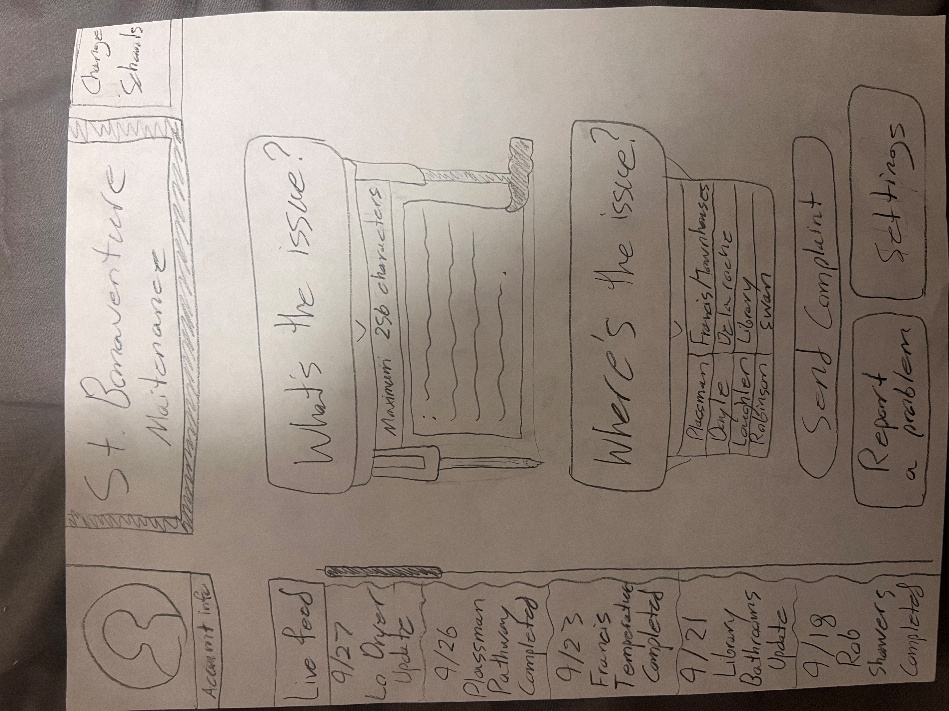 Account info
St. Bonaventure
Maitenance
Change
Schools
Live feed
9/27
Lo Dryer
Update
9/26
Plassman
Pathway
Completed
9/23
Francis
Temperature
Completed
9/21
Library
Bathrooms
Update
9/18
Rob
Showers
Completed
What's the issue?
Maximum 256 characters
Where's the issue?
Plassman Francis/Townhouses
Doyle De la roche
Loughlen Library
Robinson Swan
Send Complaint
Report
a problem
Settings